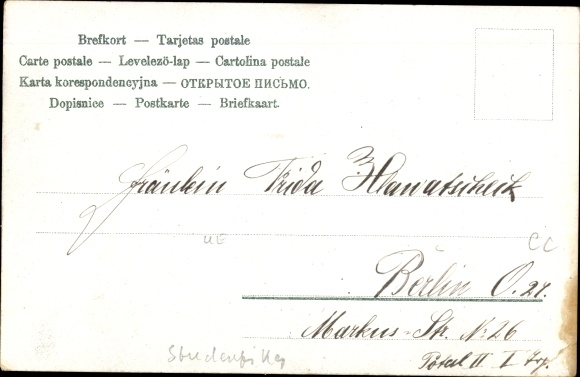 Brefkort — Tarjetas postale
Carte postale — Levelező-lap — Cartolina postale
Karta korespondencyjna — ОТКРЫТОЕ ПИСЬМО.
Dopisnice — Postkarte — Briefkaart.
Fräulein Frida Hlawatscheck
UE
CC
Berlin O. 27.
Markus-Str. No 26
Portal II I Trp.